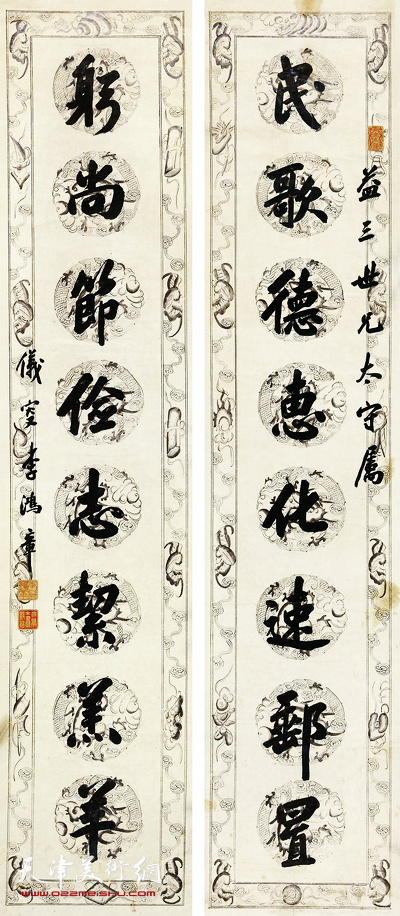 益三世兄太守属
民歌德惠化速郵置
躬尚節儉志絜羔羊
儀叟李鴻章
天津美術網
www.022meishu.com